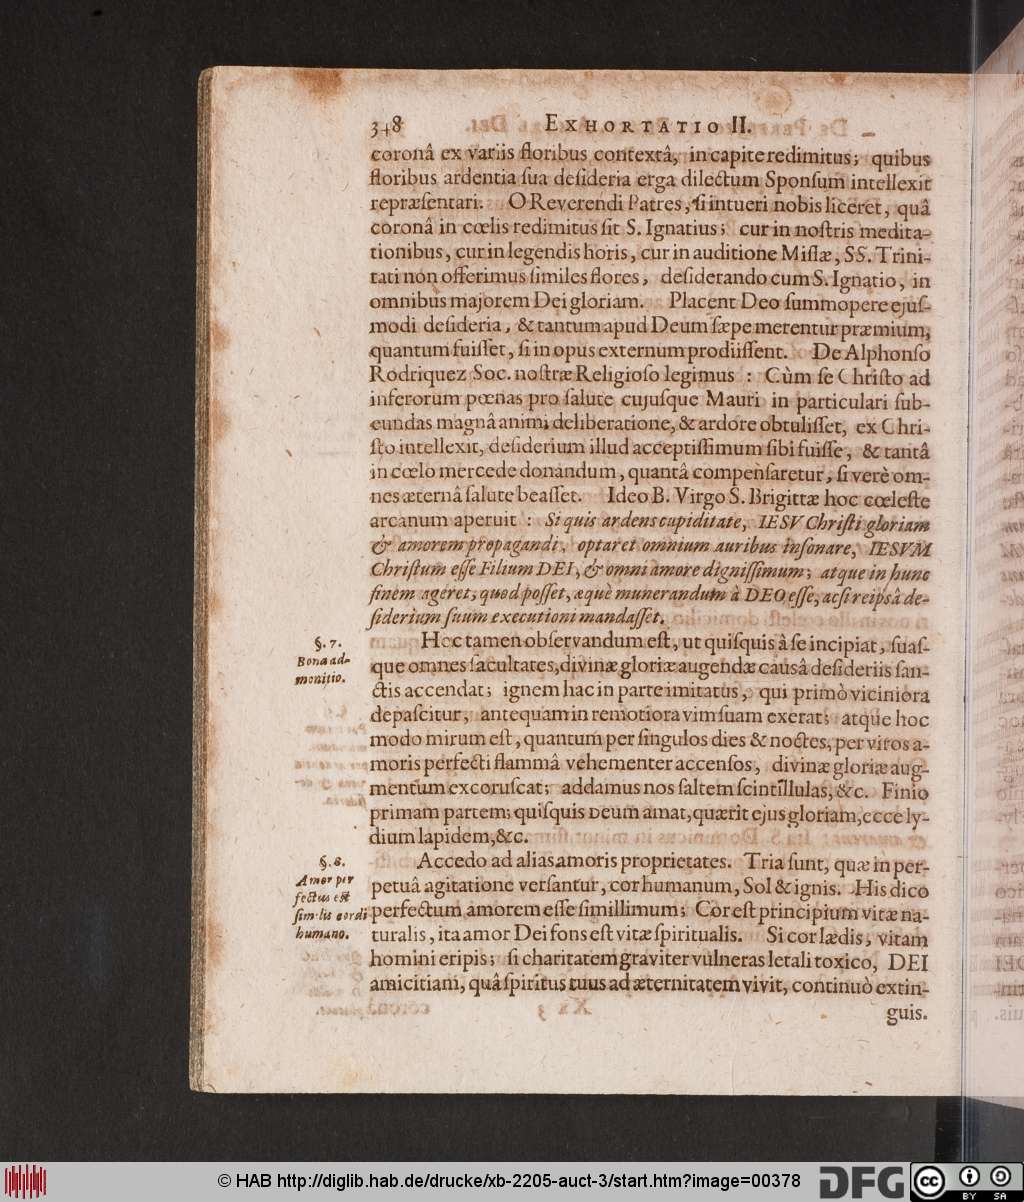 348 EXHORTATIO II.
coronâ ex variis floribus contextâ, in capite redimitus; quibus
floribus ardentia sua desideria erga dilectum Sponsum intellexit
repræsentari. O Reverendi Patres, si intueri nobis liceret, quâ
coronâ in cœlis redimitus sit S. Ignatius; cur in nostris medita-
tionibus, cur in legendis horis, cur in auditione Missæ, SS. Trini-
tati non offerimus similes flores, desiderando cum S. Ignatio, in
omnibus majorem Dei gloriam. Placent Deo summopere ejus-
modi desideria, & tantum apud Deum sæpe merentur præmium,
quantum fuisset, si in opus externum prodiissent. De Alphonso
Rodriquez Soc. nostræ Religioso legimus : Cùm se Christo ad
inferorum pœnas pro salute cujusque Mauri in particulari sub-
eundas magnâ animi deliberatione, & ardore obtulisset, ex Chri-
sto intellexit, desiderium illud acceptissimum sibi fuisse, & tantâ
in cœlo mercede donandum, quantâ compensaretur, si verè om-
nes æternâ salute beasset. Ideo B. Virgo S. Brigittæ hoc cœleste
arcanum aperuit : Si quis ardens cupiditate, IESV Christi gloriam
& amorem propagandi, optaret omnium auribus insonare, IESVM
Christum esse Filium DEI, & omni amore dignissimum; atque in hunc
finem ageret, quod posset, æquè munerandum à DEO esse, acsi reipsâ de-
siderium suum executioni mandasset.
§. 7.
Bona ad-
monitio.
Hoc tamen observandum est, ut quisquis â se incipiat, suas-
que omnes facultates, divinæ gloriæ augendæ causâ desideriis san-
ctis accendat; ignem hac in parte imitatus, qui primò viciniora
depascitur, antequam in remotiora vim suam exerat; atque hoc
modo mirum est, quantum per singulos dies & noctes, per viros a-
moris perfecti flammâ vehementer accensos, divinæ gloriæ aug-
mentum excoruscat; addamus nos saltem scintillulas, &c. Finio
primam partem; quisquis DEUM amat, quærit ejus gloriam, ecce ly-
dium lapidem, &c.
§. 8.
Amor per
fectus est
similis cordi
humano.
Accedo ad alias amoris proprietates. Tria sunt, quæ in per-
petuâ agitatione versantur, cor humanum, Sol & ignis. His dico
perfectum amorem esse simillimum; Cor est principium vitæ na-
turalis, ita amor Dei fons est vitæ spiritualis. Si cor lædis, vitam
homini eripis; si charitatem graviter vulneras letali toxico, DEI
amicitiam, quâ spiritus tuus ad æternitatem vivit, continuò extin-
guis.
© HAB http://diglib.hab.de/drucke/xb-2205-auct-3/start.htm?image=00378
DFG
cc
BY SA